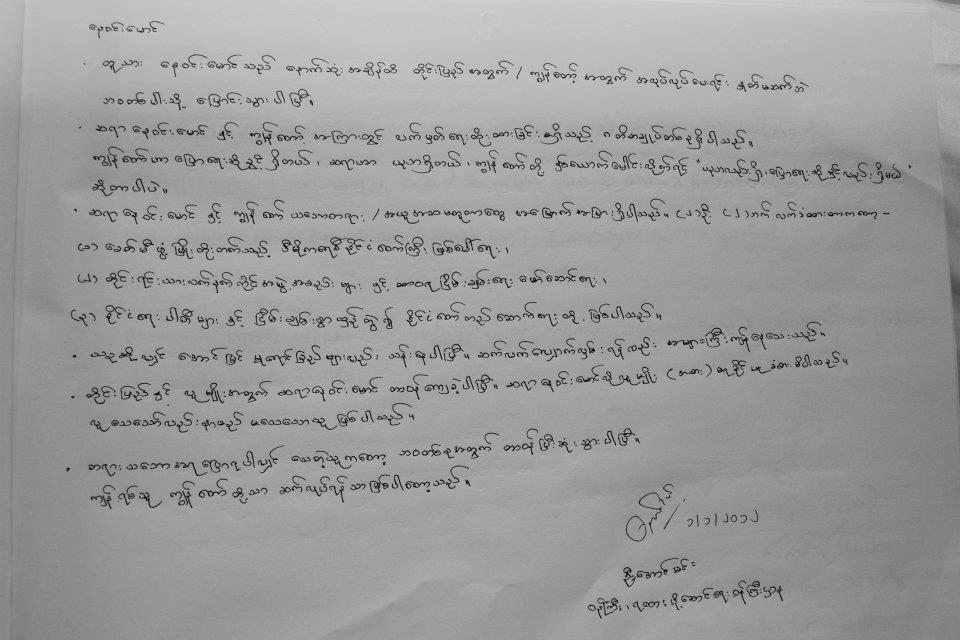 နေဝင်းမောင်
· သူသား နေဝင်းမောင်သည် နောက်ဆုံးအချိန်ထိ တိုင်းပြည်အတွက် / ကျွန်တော့်အတွက် အလုပ်လုပ်ပေးရင်း ရုတ်မဆက်ဘဲ
ဘဝတစ်ပါးသို့ ပြောင်းသွားပါပြီ။
· ဆရာနေဝင်းမောင် နှင့် ကျွန်တော့်အကြားတွင် ပက်မှတ်ရေးထိုးထားခြင်းမရှိသည့် ဂတိတချုပ်တစ်ခုရှိပါသည်။
ကျွန်တော်ဟာ ပြောရေးဆိုခွင့်ရှိတယ်၊ ဆရာဟာ ပညာရှိတယ်၊ ကျွန်တော်တို့ နှစ်ယောက်ပေါင်းလိုက်ရင် "ပညာလည်းရှိ၊ ပြောရေးဆိုခွင့်လည်းရှိမယ်"
ဆိုတာပါပဲ။
· ဆရာနေဝင်းမောင် နှင့် ကျွန်တော် သဘောတရား / အယူအဆမတူတာတွေ အမြောက်အများရှိပါသည်။ (၂)ဦး (၂)ဘက် လက်ခံထားတာကတော့-
(၁) ခေတ်မီဖွံ့ဖြိုးတိုးတက်သည့် ဒီမိုကရေစီနိုင်ငံတော်ကြီး ဖြစ်ပေါ်ရေး၊
(၂) တိုင်းရင်းသားလက်နက်ကိုင်အဖွဲ့အစည်းများ နှင့် ထာဝရငြိမ်းချမ်းရေး ဖော်ဆောင်ရေး၊
(၃) နိုင်ငံရေးပါတီများ နှင့် ငြိမ်းချမ်းစွာယှဉ်တွဲ၍ နိုင်ငံတော်တည်ဆောက်ရေးတို့ ဖြစ်ပါသည်။
· ယခုဆိုလျှင် အောင်မြင်မှုရောင်ခြည်များလည်း သန်းနေပါပြီ။ ဆက်လက်လျှောက်လှမ်းရန်လည်း အများကြီးကျန်နေသေးသည်။
· တိုင်းပြည်နှင့် လူမျိုးအတွက် ဆရာနေဝင်းမောင် တာဝန်ကျေခဲ့ပါပြီ။ ဆရာနေဝင်းမောင်လိုလူမျိုး (အစား) ရနိုင်မှု ခဲယဉ်းမိပါသည်။
လူသေသော်လည်း နာမည် မသေသောသူ ဖြစ်ပါသည်။
· တရားသဘောအရပြောရပါလျှင် သေတဲ့သူကတော့ ဘဝတစ်ခုအတွက် တာဝန်ပြီးဆုံးသွားပါပြီ။
ကျန်ရစ်သူ ကျွန်တော်တို့သာ ဆက်လုပ်ရန်သာဖြစ်ပါတော့သည်။
၁/၁/၂၀၁၂
ဦးအောင်မင်း
ဝန်ကြီး၊ ရထားပို့ဆောင်ရေးဝန်ကြီးဌာန